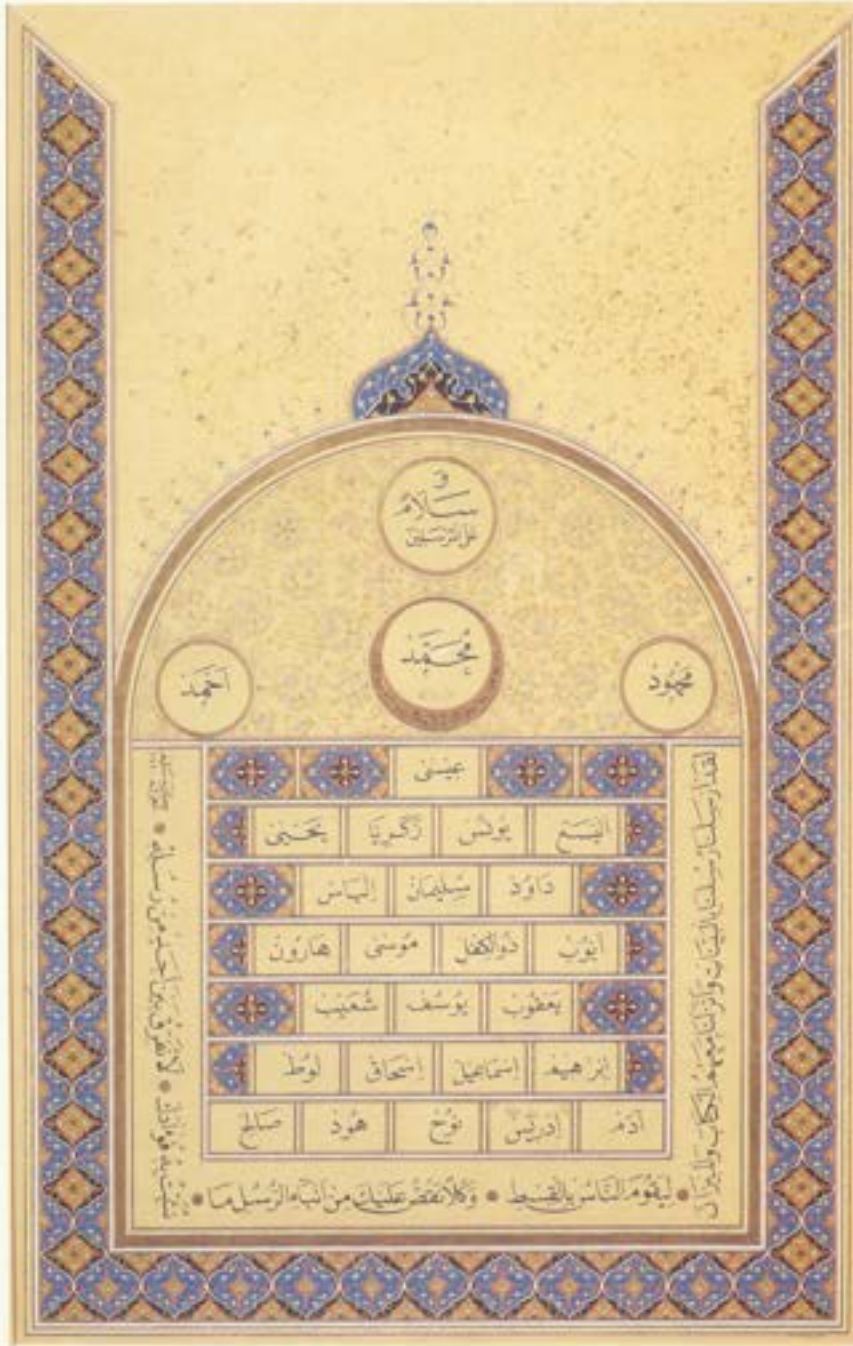 و
سلام
على المرسلين
محمد
محمود
أحمد
عيسى
اليسع يونس زكريا يحيى
داود سليمان إلياس
أيوب ذوالكفل موسى هارون
يعقوب يوسف شعيب
إبرهيم إسماعيل إسحاق لوط
آدم إدريس نوح هود صالح
لقد أرسلنا رسلنا بالبينات وأنزلنا معهم الكتاب والميزان
ليقوم الناس بالقسط * وكلا نقص عليك من أنباء الرسل ما
نثبت به فؤادك * لا نفرق بين أحد من رسله *